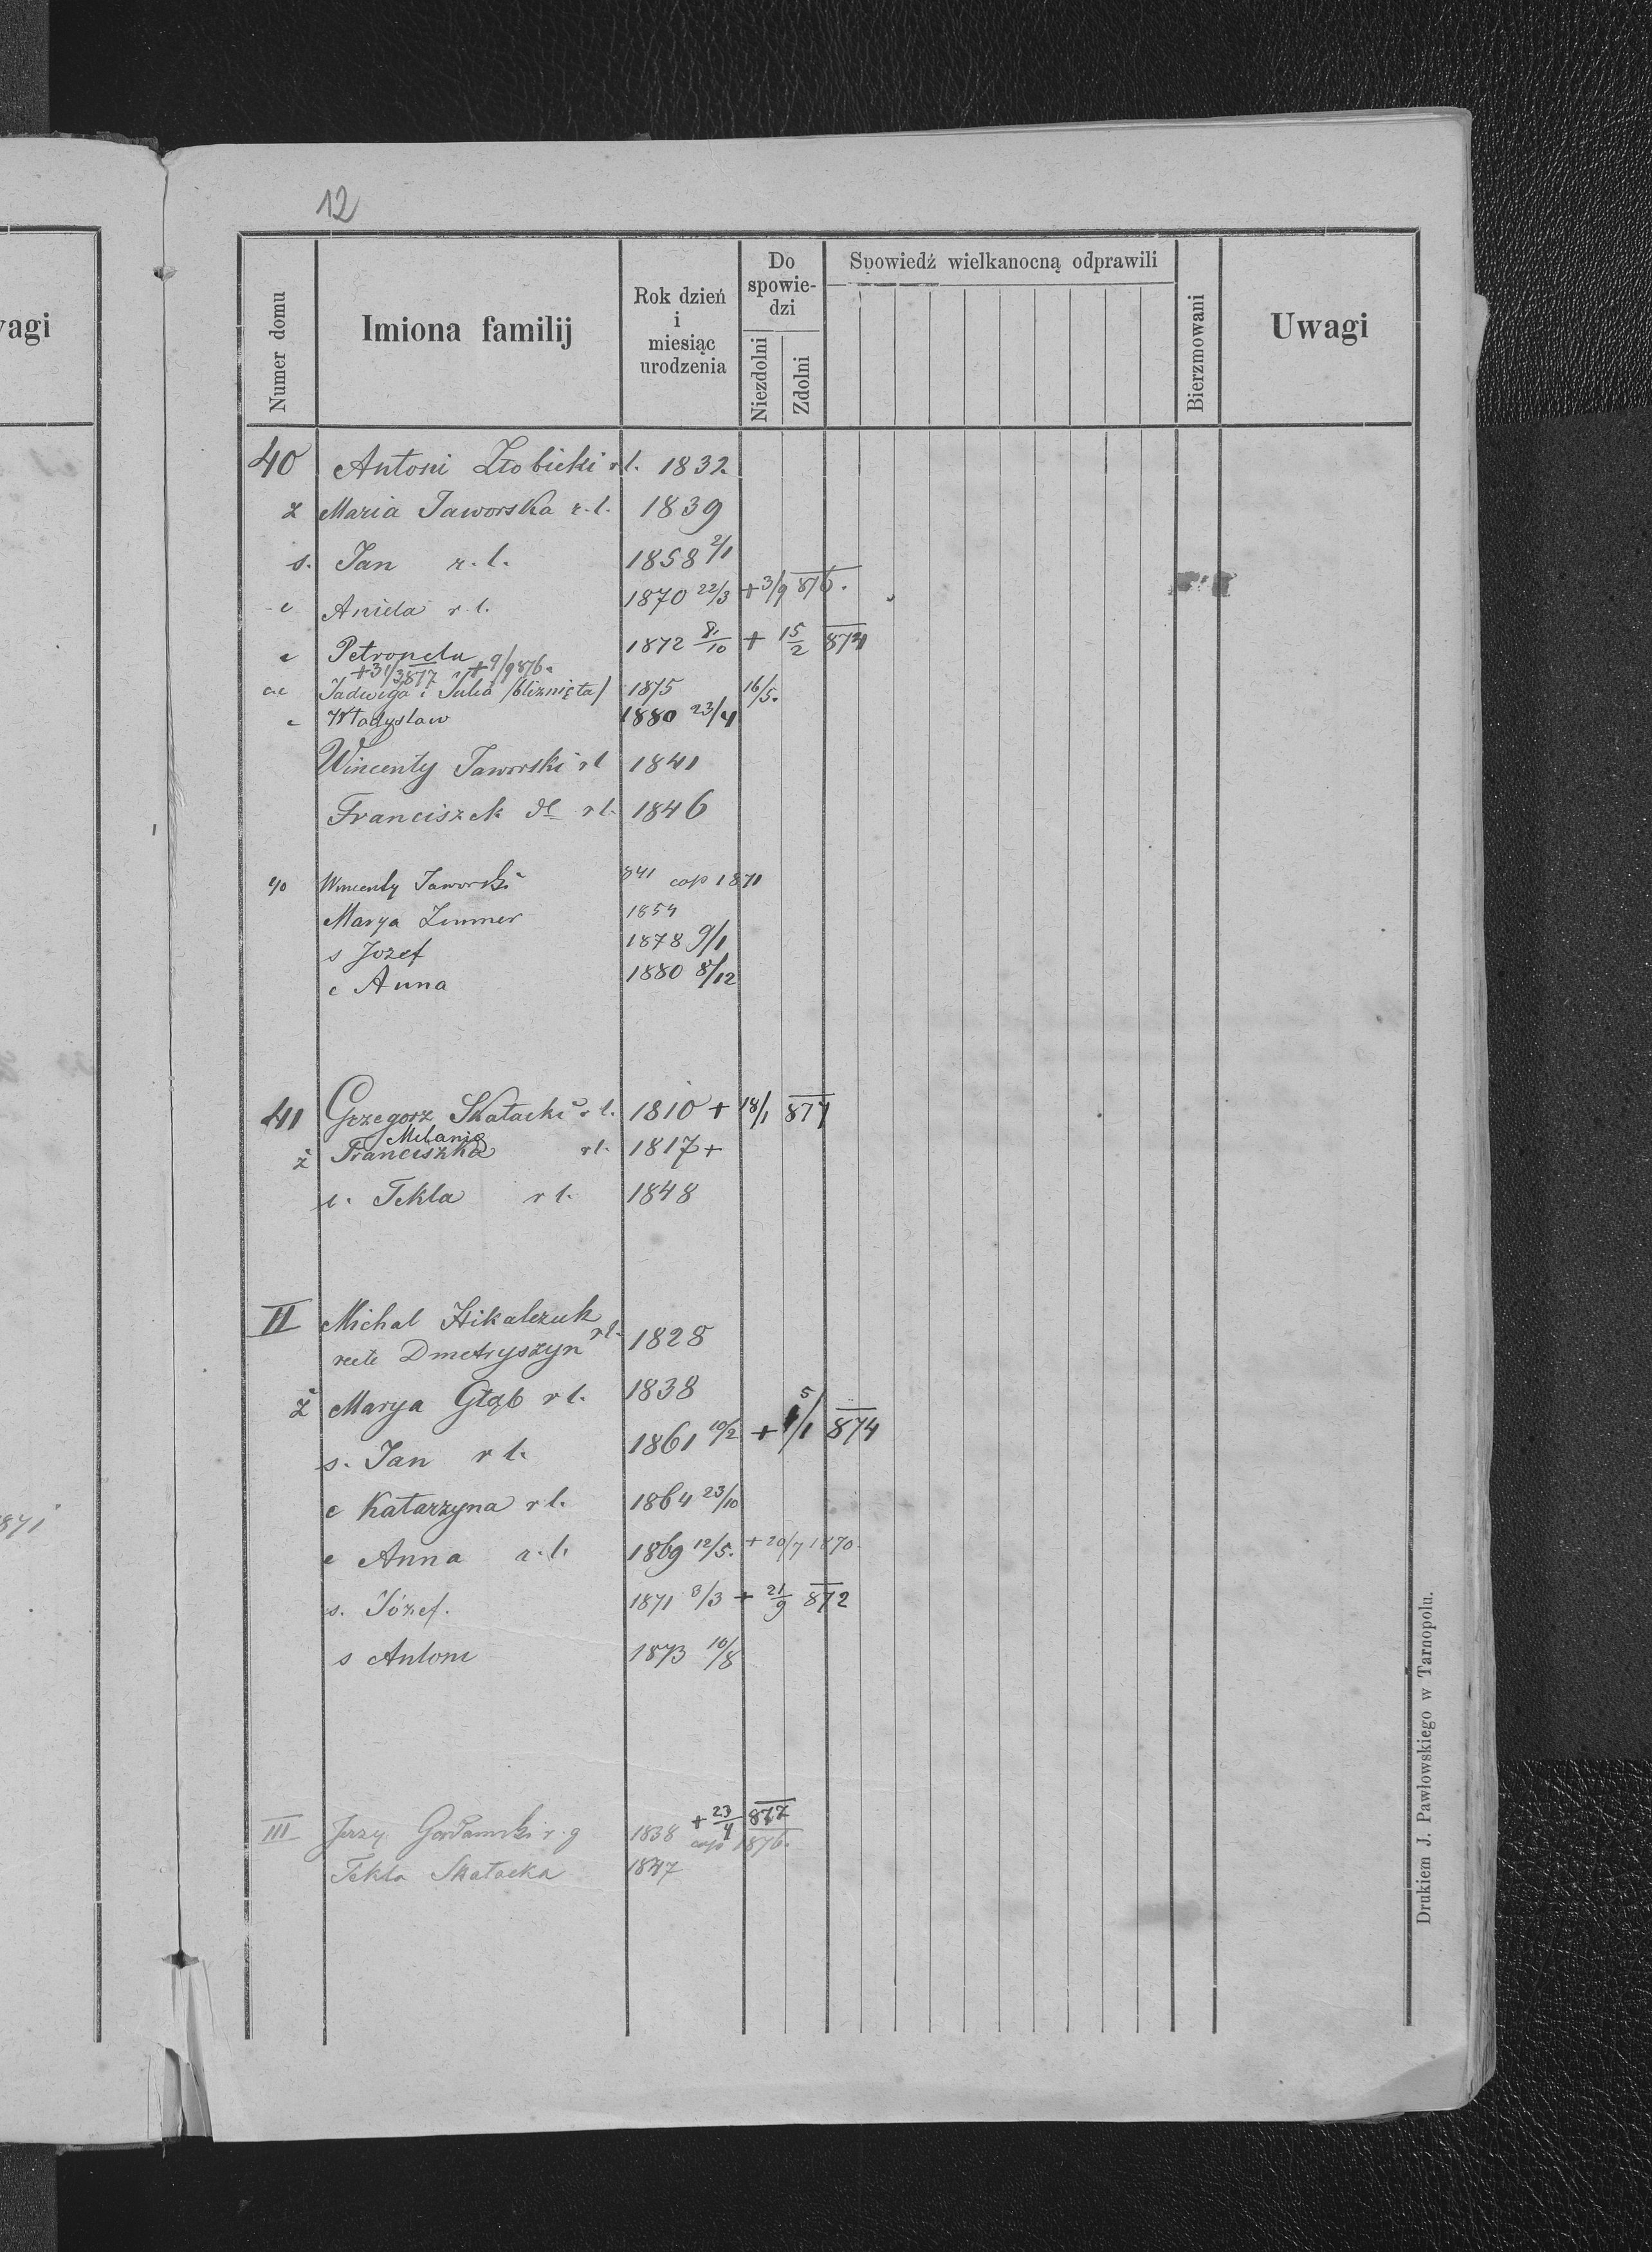 12
vagi
Numer domu
Imiona familij
Rok dzień i miesiąc urodzenia
Do spowiedzi
Niezdolni
Zdolni
Spowiedź wielkanocną odprawili
Bierzmowani
Uwagi
40 Antoni Złobicki r.l. 1832
ż Maria Jaworska r.l. 1839
s. Jan r.l. 1858 2/1
c Aniela r.l. 1870 22/3 +3/9 876.
c Petronela 1872 8/10 + 15/2 874
+31/3 877 +9/9 876.
c.c Jadwiga i Julia /bliznięta/ 1875 16/5.
c Władysław 1880 23/4
Wincenty Jaworski rl 1841
Franciszek dt rl. 1846
40 Wincenty Jaworski 841 cop 1871
Marya Zimmer 1854
s Jozef 1878 9/1
c Anna 1880 8/12
41 Grzegorz Skałacki r.l. 1810 + 18/1 877
Melania
ż Franciszka rl. 1817 +
c. Tekla rl. 1848
II Michal Hikalczuk
recte Dmetryszyn rl. 1828
ż Marya Głąb rl. 1838
s. Jan rl. 1861 10/2 + 5/1 874
c Katarzyna rl. 1864 23/10
c Anna r.l. 1869 12/5. +20/7 1870.
s. Józef. 1871 3/3 + 21/9 872
s Antoni 1873 10/8
III Jerzy r.g 1838 + 23/4 877
cop 1876.
Tekla Skałacka 1847
871
Drukiem J. Pawłowskiego w Tarnopolu.